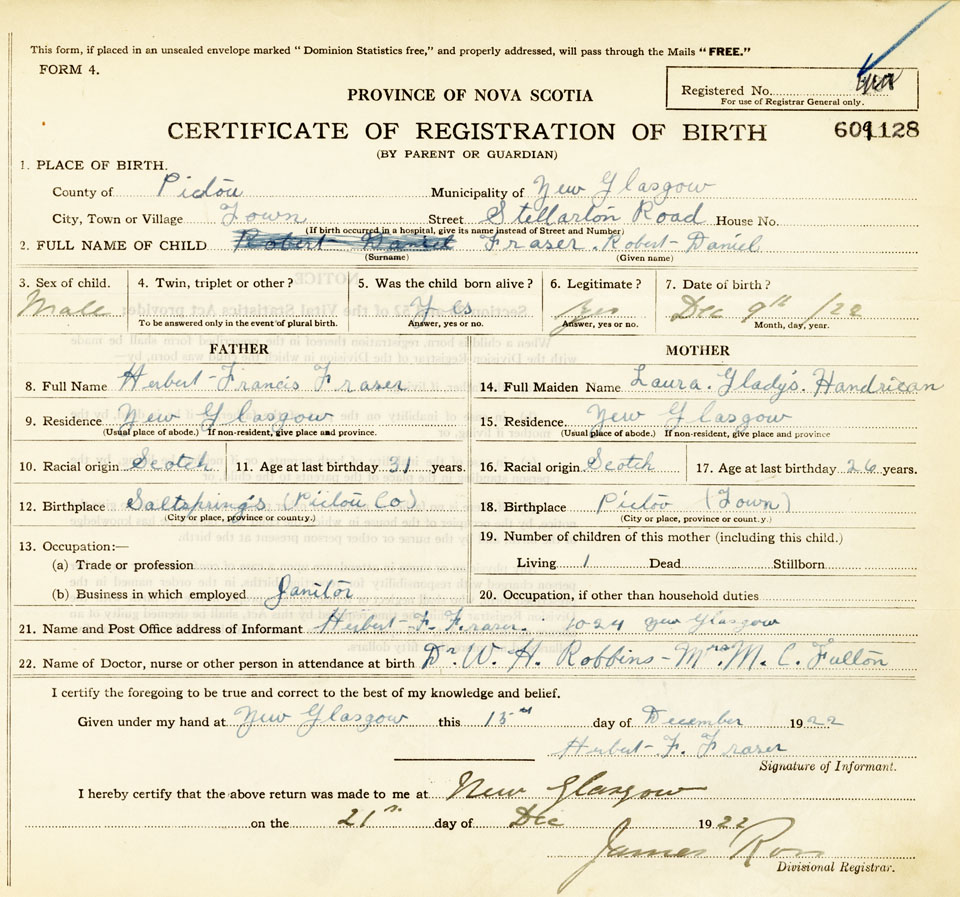 This form, if placed in an unsealed envelope marked "Dominion Statistics free," and properly addressed, will pass through the Mails "FREE."
FORM 4.
Registered No.
For use of Registrar General only.
PROVINCE OF NOVA SCOTIA
CERTIFICATE OF REGISTRATION OF BIRTH 601128
(BY PARENT OR GUARDIAN)
1. PLACE OF BIRTH.
County of Pictou Municipality of New Glasgow
City, Town or Village Town Street Stellarton Road House No.
(If birth occurred in a hospital, give its name instead of Street and Number)
2. FULL NAME OF CHILD Robert Daniel Fraser. Robert Daniel
(Surname) (Given name)
3. Sex of child. 4. Twin, triplet or other? 5. Was the child born alive? 6. Legitimate? 7. Date of birth?
Male Yes Yes Dec 9th /22
To be answered only in the event of plural birth. Answer, yes or no. Answer, yes or no. Month, day, year.
FATHER MOTHER
8. Full Name Herbert Francis Fraser 14. Full Maiden Name Laura. Glady's. Handrican
9. Residence New Glasgow 15. Residence New Glasgow
(Usual place of abode.) If non-resident, give place and province. (Usual place of abode.) If non-resident, give place and province
10. Racial origin Scotch 11. Age at last birthday 31 years. 16. Racial origin Scotch 17. Age at last birthday 26 years.
12. Birthplace Saltspring's (Pictou Co) 18. Birthplace Pictou (Town)
(City or place, province or country.) (City or place, province or county.)
13. Occupation:— 19. Number of children of this mother (including this child.)
(a) Trade or profession Living 1 Dead Stillborn
(b) Business in which employed Janitor 20. Occupation, if other than household duties
21. Name and Post Office address of Informant Herbert F. Fraser. 1024 New Glasgow
22. Name of Doctor, nurse or other person in attendance at birth Dr W. H. Robbins - Mrs M. C. Fulton
I certify the foregoing to be true and correct to the best of my knowledge and belief.
Given under my hand at New Glasgow this 15 day of December 1922
Herbert F. Fraser
Signature of Informant.
I hereby certify that the above return was made to me at New Glasgow
on the 21st day of Dec 1922
James Ross
Divisional Registrar.